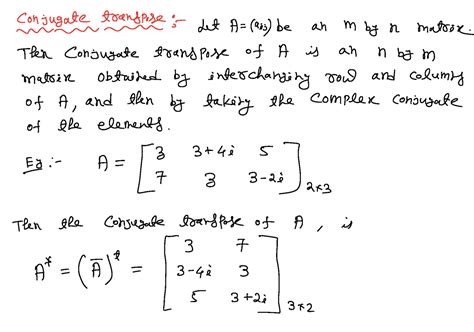 Conjugate transpose :- Let A = (aij) be an m by n matrix.
Then Conjugate transpose of A is an n by m
matrix obtained by interchanging row and columns
of A, and then by taking the complex conjugate
of the elements.
Eg :- A = [3 3+4i 5
7 3 3-2i] 2×3
Then the Conjugate transpose of A, is
A* = (Ā)ᵗ = [3 7
3-4i 3
5 3+2i] 3×2